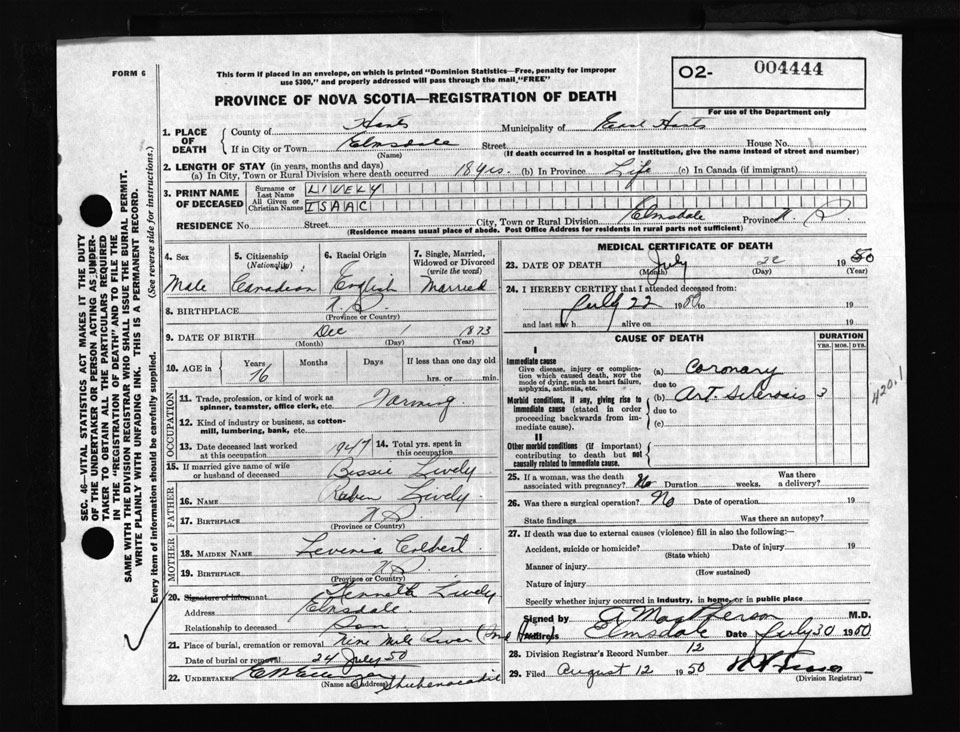 FORM 6
This form if placed in an envelope, on which is printed "Dominion Statistics—Free, penalty for improper
use $300," and properly addressed will pass through the mail "FREE"
PROVINCE OF NOVA SCOTIA—REGISTRATION OF DEATH
O2- 004444
For use of the Department only
1. PLACE OF DEATH
County of Hants Municipality of East Hants
If in City or Town Elmsdale Street House No.
(Name) (If death occurred in a hospital or institution, give the name instead of street and number)
2. LENGTH OF STAY (in years, months and days)
(a) In City, Town or Rural Division where death occurred 18 yrs. (b) In Province Life (c) In Canada (if immigrant)
3. PRINT NAME OF DECEASED
Surname or Last Name LIVELY
All Given or Christian Names ISAAC
RESIDENCE No. Street City, Town or Rural Division Elmsdale Province N. S.
(Residence means usual place of abode. Post Office Address for residents in rural parts not sufficient)
4. Sex 5. Citizenship (Nationality) 6. Racial Origin 7. Single, Married, Widowed or Divorced (write the word)
Male Canadian English Married
8. BIRTHPLACE N. S.
(Province or Country)
9. DATE OF BIRTH Dec 1 1873
(Month) (Day) (Year)
10. AGE in Years Months Days If less than one day old
76 hrs. or min.
OCCUPATION
11. Trade, profession, or kind of work as
spinner, teamster, office clerk, etc. Farming
12. Kind of industry or business, as cotton-
mill, lumbering, bank, etc.
13. Date deceased last worked at this occupation 1947 14. Total yrs. spent in this occupation
15. If married give name of wife or husband of deceased Bessie Lively
FATHER
16. Name Ruben Lively
17. Birthplace N.S.
(Province or Country)
MOTHER
18. Maiden Name Levenia Colbert
19. Birthplace N.S.
(Province or Country)
20. Signature of informant Kenneth Lively
Address Elmsdale.
Relationship to deceased Son
21. Place of burial, cremation or removal Nine Mile River
Date of burial or removal 24 July 50
22. UNDERTAKER Shubenacadie
(Name and address)
MEDICAL CERTIFICATE OF DEATH
23. DATE OF DEATH July 22 1950
(Month) (Day) (Year)
24. I HEREBY CERTIFY that I attended deceased from:
July 22 1950 to 19
and last saw h alive on 19
CAUSE OF DEATH DURATION
YRS. MOS. DYS.
I
Immediate cause
Give disease, injury or complica-
tion which caused death, NOT the
mode of dying, such as heart failure,
asphyxia, asthenia, etc.
(a) Coronary
due to
Morbid conditions, if any, giving rise to
immediate cause (stated in order
proceeding backwards from im-
mediate cause).
(b) Art. Sclerosis 3
due to
(c)
II
Other morbid conditions (if important)
contributing to death but not
causally related to immediate cause.
420.1
25. If a woman, was the death associated with pregnancy? No Duration weeks. Was there a delivery?
26. Was there a surgical operation? No Date of operation 19
State findings Was there an autopsy?
27. If death was due to external causes (violence) fill in also the following:—
Accident, suicide or homicide? Date of injury 19
(State which)
Manner of injury
(How sustained)
Nature of injury
Specify whether injury occurred in industry, in home, or in public place
Signed by A MacPherson M.D.
Address Elmsdale Date July 30 1950
28. Division Registrar's Record Number 12
29. Filed August 12 1950
(Division Registrar)
SEC. 46—VITAL STATISTICS ACT MAKES IT THE DUTY
OF THE UNDERTAKER OR PERSON ACTING AS UNDER-
TAKER TO OBTAIN ALL THE PARTICULARS REQUIRED
IN THE "REGISTRATION OF DEATH" AND TO FILE THE
SAME WITH THE DIVISION REGISTRAR WHO SHALL ISSUE THE BURIAL PERMIT.
WRITE PLAINLY WITH UNFADING INK. THIS IS A PERMANENT RECORD.
Every item of information should be carefully supplied. (See reverse side for instructions.)